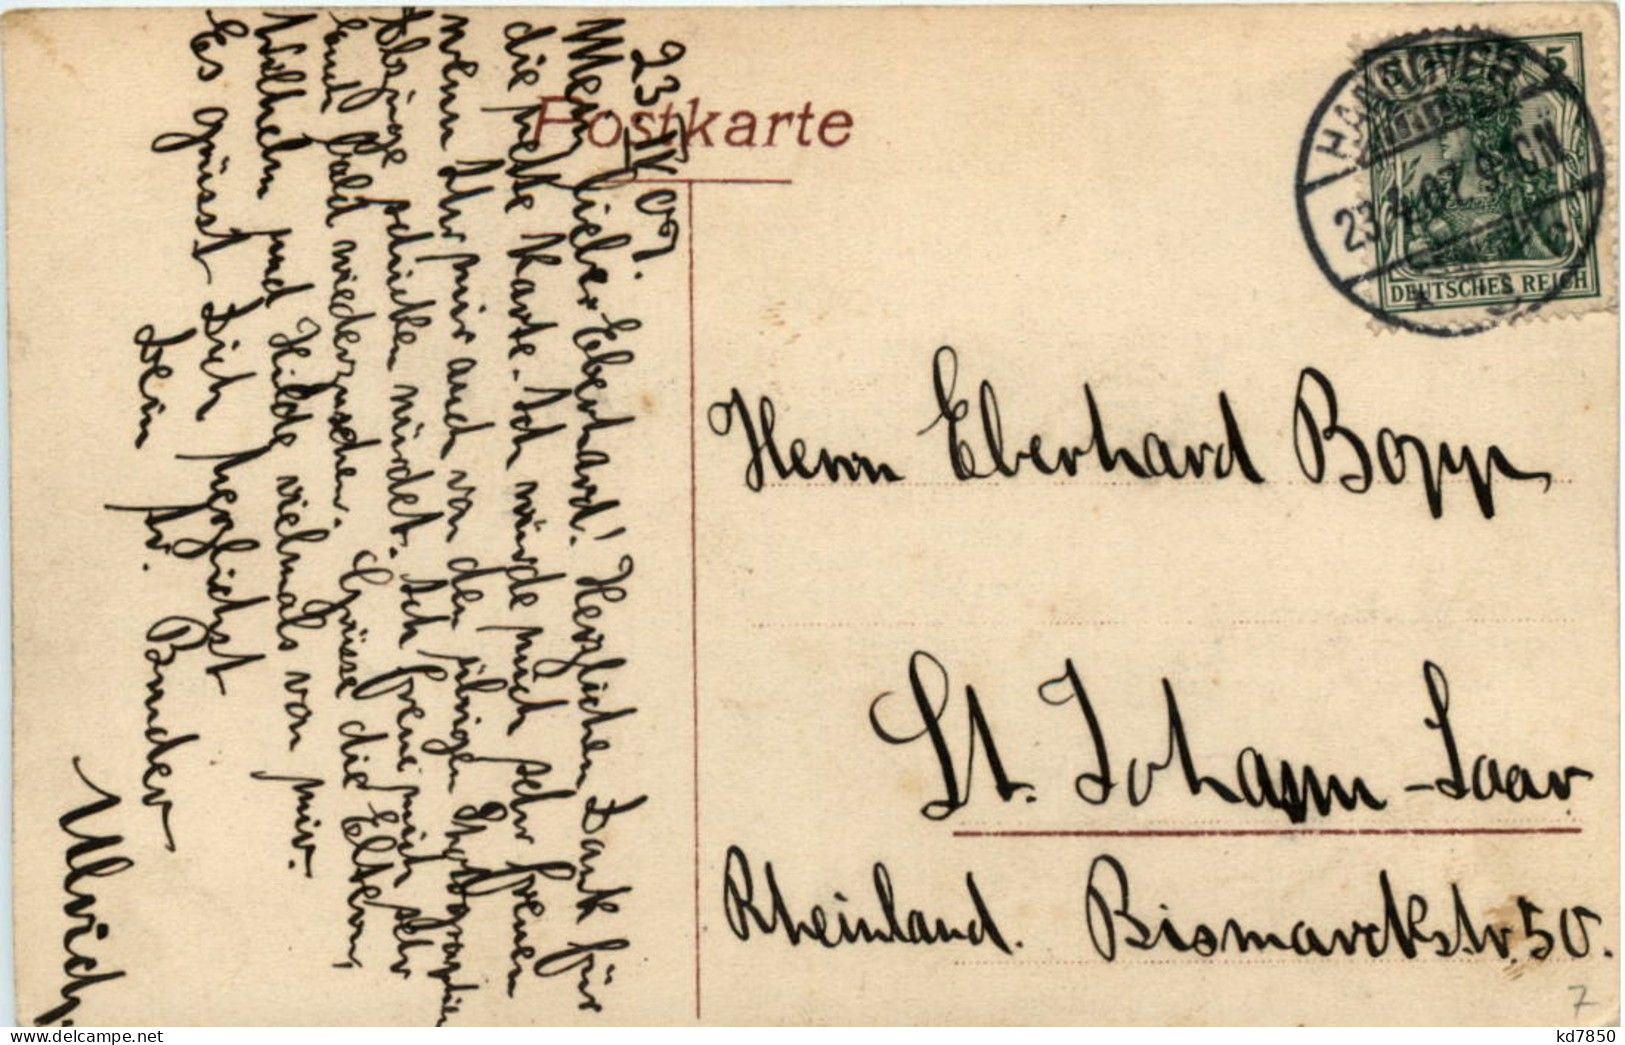 Postkarte
HANNOVER
23.4.07.9-10N
5
DEUTSCHES REICH
23 IV 07.
Mein lieber Eberhard! Herzlichen Dank für
die nette Karte. Ich würde mich sehr freuen
wenn Ihr mir auch von den übrigen Photographien
Abzüge schicken würdet. Ich freue mich sehr
Euch bald wiederzusehen. Grüsse die Eltern,
Wilhelm und Hilde vielmals von mir.
Es grüsst Dich herzlichst
Dein
tr. Bruder
Ulrich.
Herrn Eberhard Bopp
St. Johann-Saar
Rheinland. Bismarckstr. 50.
7
kd7850